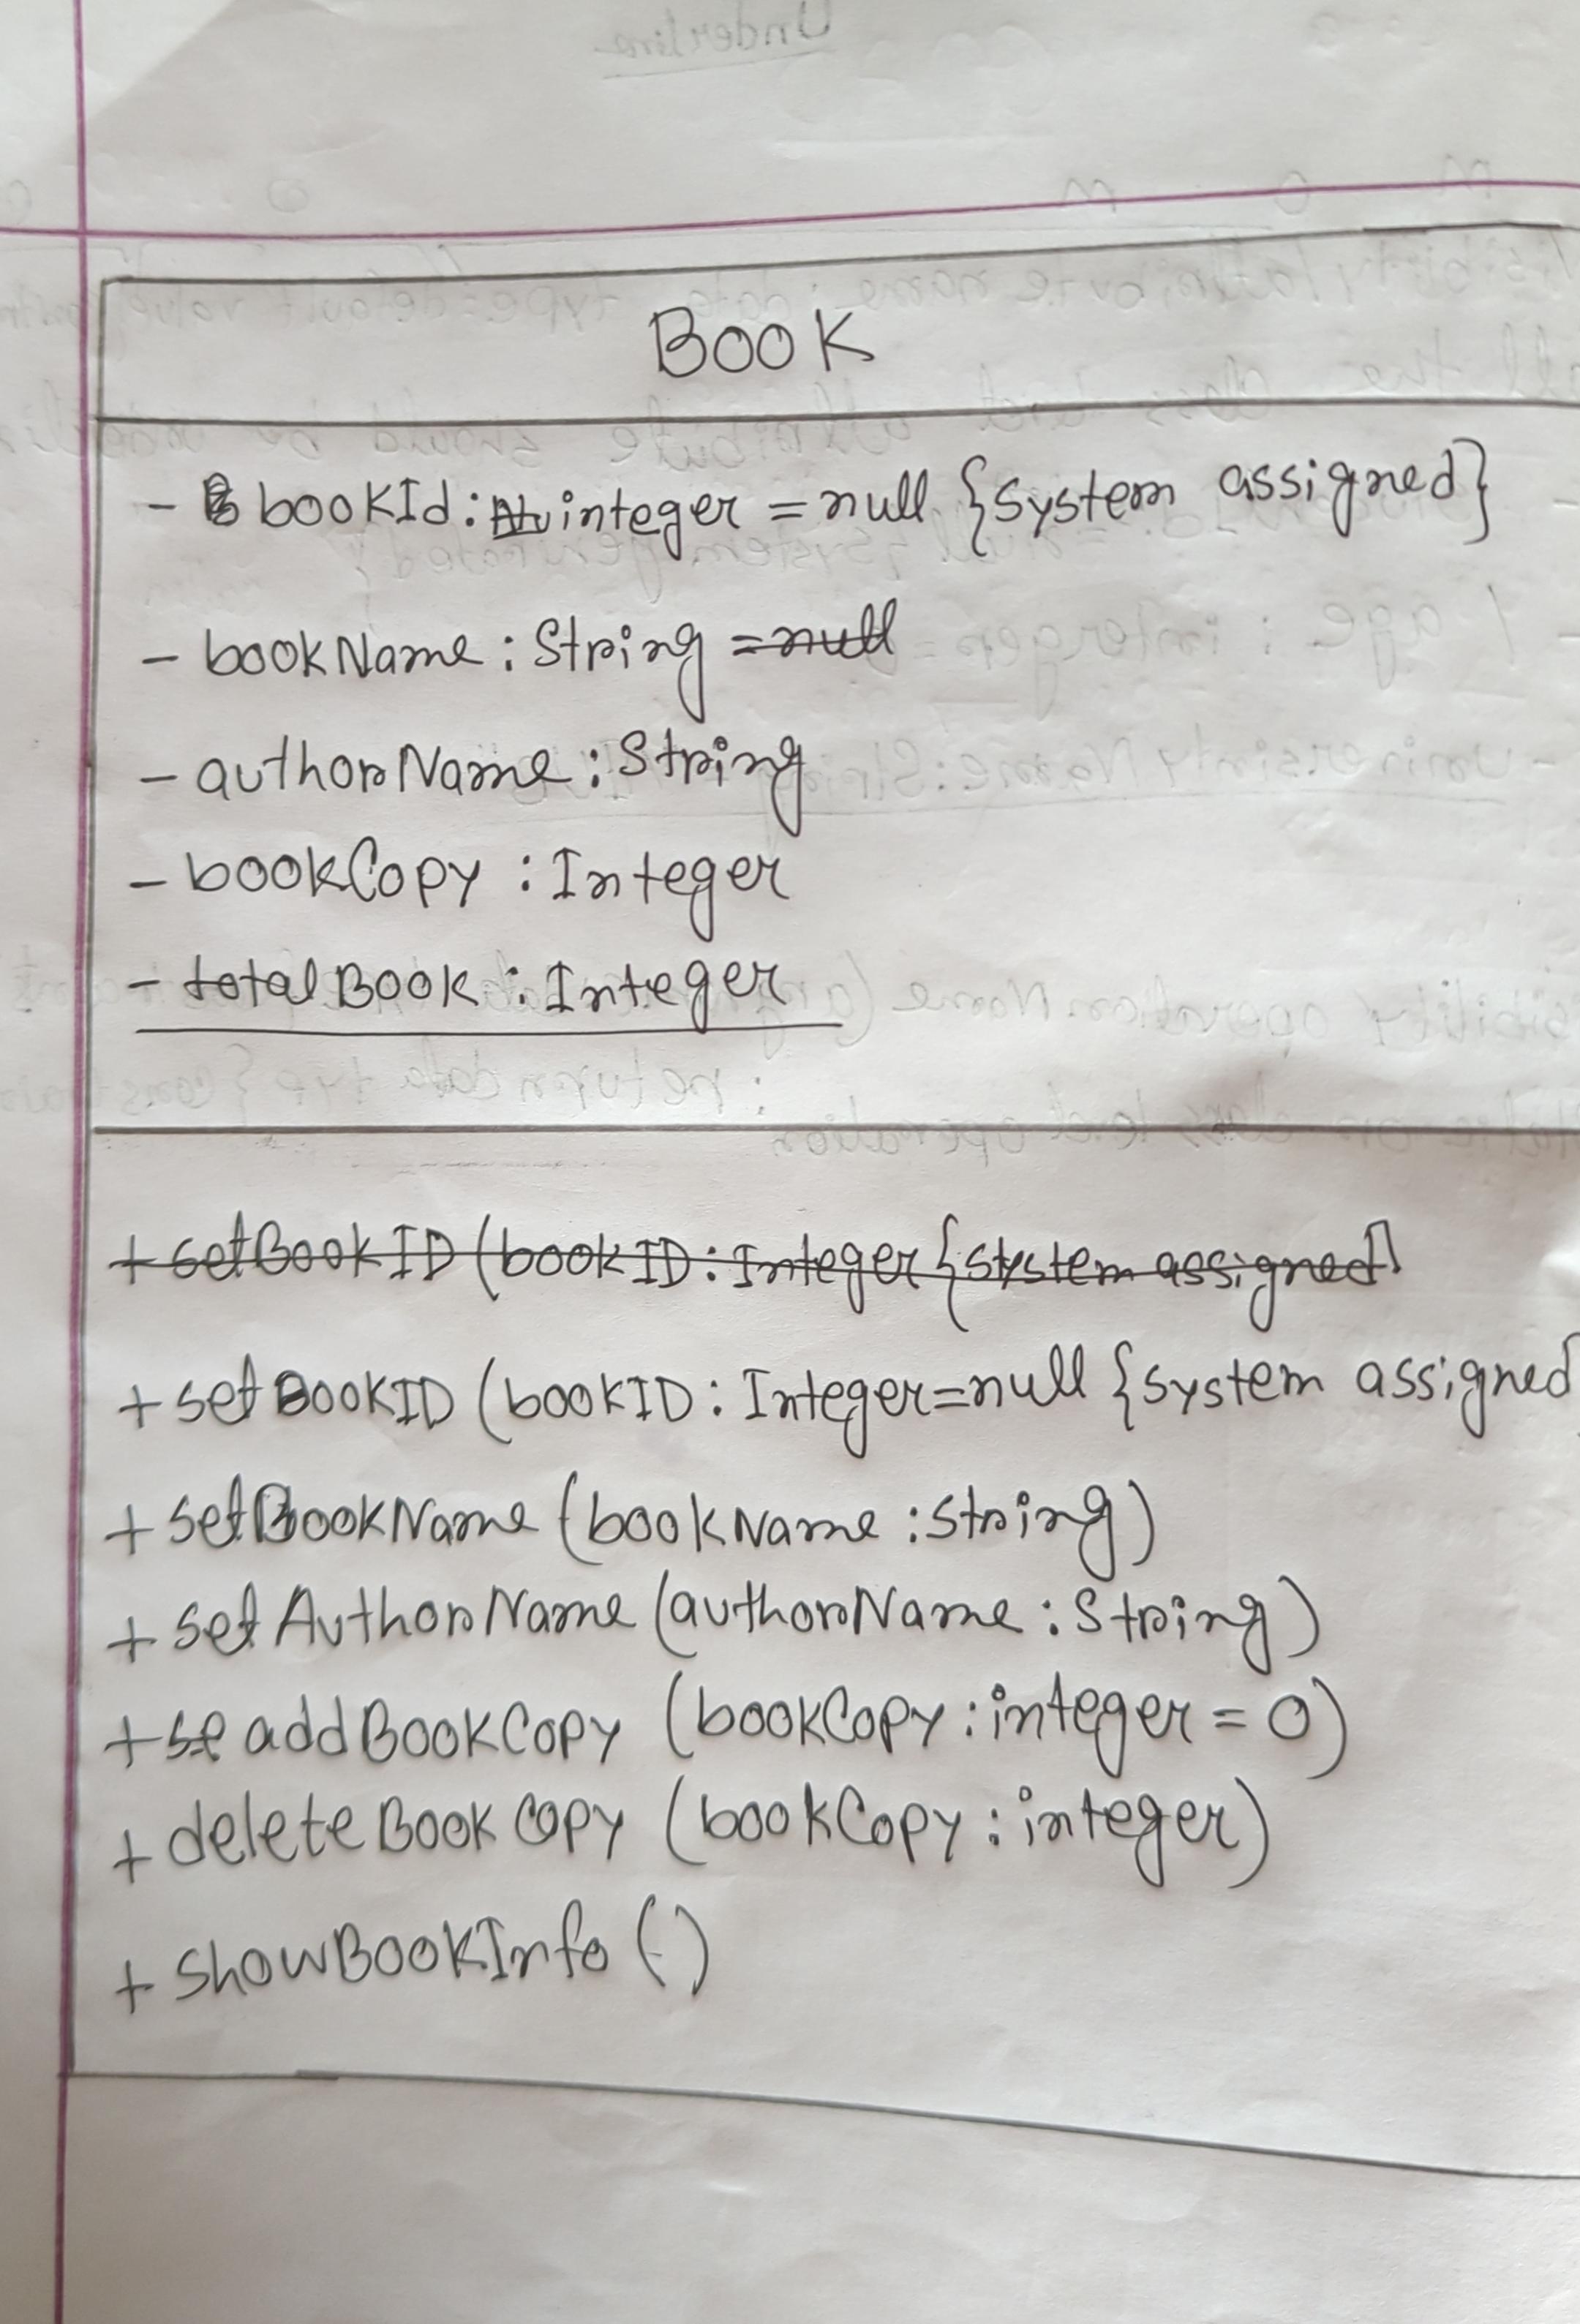 BOOK
- bookId: integer = null {system assigned}
- bookName : String = null
- authorName : String
- bookCopy : Integer
- totalBook : Integer
+ setBookID (bookID : Integer {system assigned}
+ setBookID (bookID : Integer = null {system assigned
+ setBookName (bookName : String)
+ setAuthorName (authorName : String)
+ se addBookCopy (bookCopy : integer = 0)
+ deleteBookCopy (bookCopy : integer)
+ showBookInfo ()